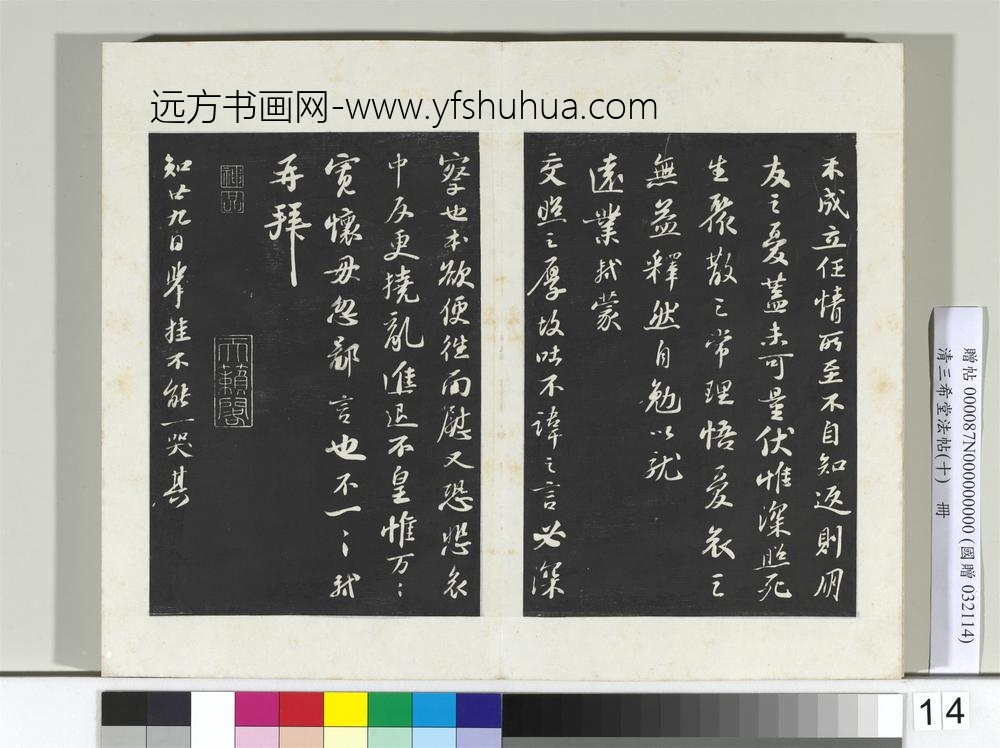 远方书画网-www.yfshuhua.com
未成立任情所至不自知返則朋
友之憂蓋未可量伏惟深照死
生聚散之常理悟憂哀之
無益釋然自勉以就
遠業軾蒙
交照之厚故吐不諱之言必深
察也本欲便往面慰又恐悲哀
中反更撓亂進退不皇惟万〻
寬懷毋忽鄙言也不一〻軾
再拜
天籟閣
知廿九日舉挂不能一哭其
贈帖 000087N000000000 (國贈 032114)
清三希堂法帖(十) 冊
14